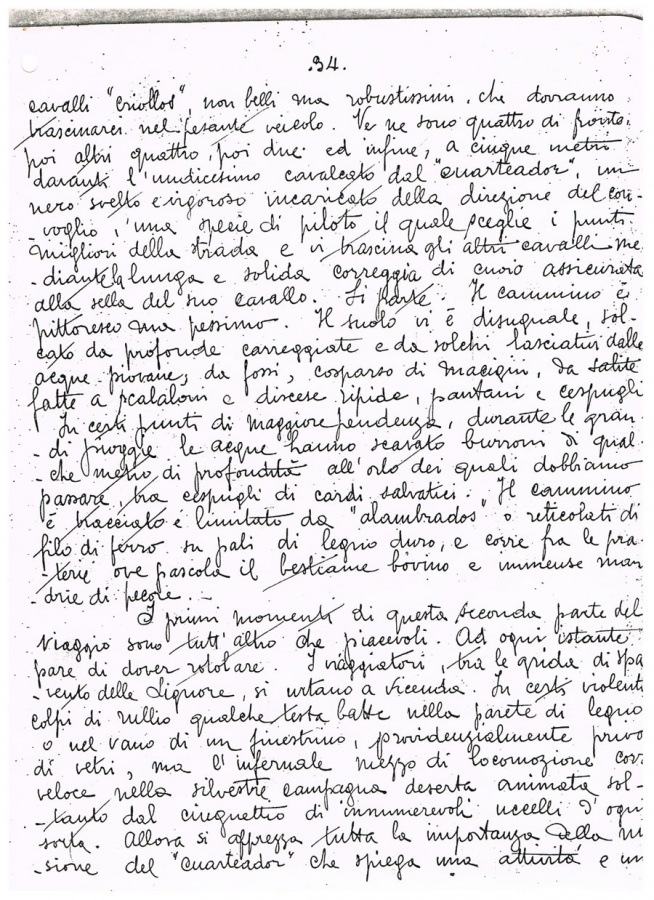 .34.
cavalli "criollos", non belli ma robustissimi, che dovranno
trascinarci nel pesante veicolo. Ve ne sono quattro di fronte,
poi altri quattro, poi due ed infine, a cinque metri
davanti l'undicesimo cavalcato dal "cuarteador", un
nero svelto e vigoroso incaricato della direzione del con-
-voglio, una specie di piloto il quale sceglie i punti
migliori della strada e vi trascina gli altri cavalli me
-diante la lunga e solida correggia di cuoio assicurata
alla sella del suo cavallo. Si parte. Il cammino è
pittoresco ma pessimo. Il suolo vi è disuguale, sol-
cato da profonde carreggiate e da solchi lasciativi dalle
acque piovane, da fossi, cosparso di macigni, da salite
fatte a scalaloni e discese ripide, pantani e cespugli
In certi punti di maggiore pendenza, durante le gran-
-di pioggie le acque hanno scavato burroni di qual-
-che metro di profondità all'orlo dei quali dobbiamo
passare, tra cespugli di cardi salvatici. Il cammino
è tracciato e limitato da "alambrados" o reticolati di
filo di ferro su pali di legno duro, e corre fra le pra-
-terie ove pascola il bestiame bovino e immense man
-drie di pecore.
I primi momenti di questa seconda parte del
viaggio sono tutt'altro che piacevoli. Ad ogni istante
pare di dover rotolare. I viaggiatori, tra le grida di spa
-vento delle Signore, si urtano a vicenda. In certi violenti
colpi di rullio qualche testa batte nella parete di legno
o nel vano di un finestrino, providenzialmente privo
di vetri, ma l'infernale mezzo di locomozione corre
veloce nella silvestre campagna deserta animata sol-
-tanto dal cinguettio di innumerevoli uccelli d'ogni
sorta. Allora si apprezza tutta la importanza della mi
-sione del "cuarteador" che spiega una attività e un